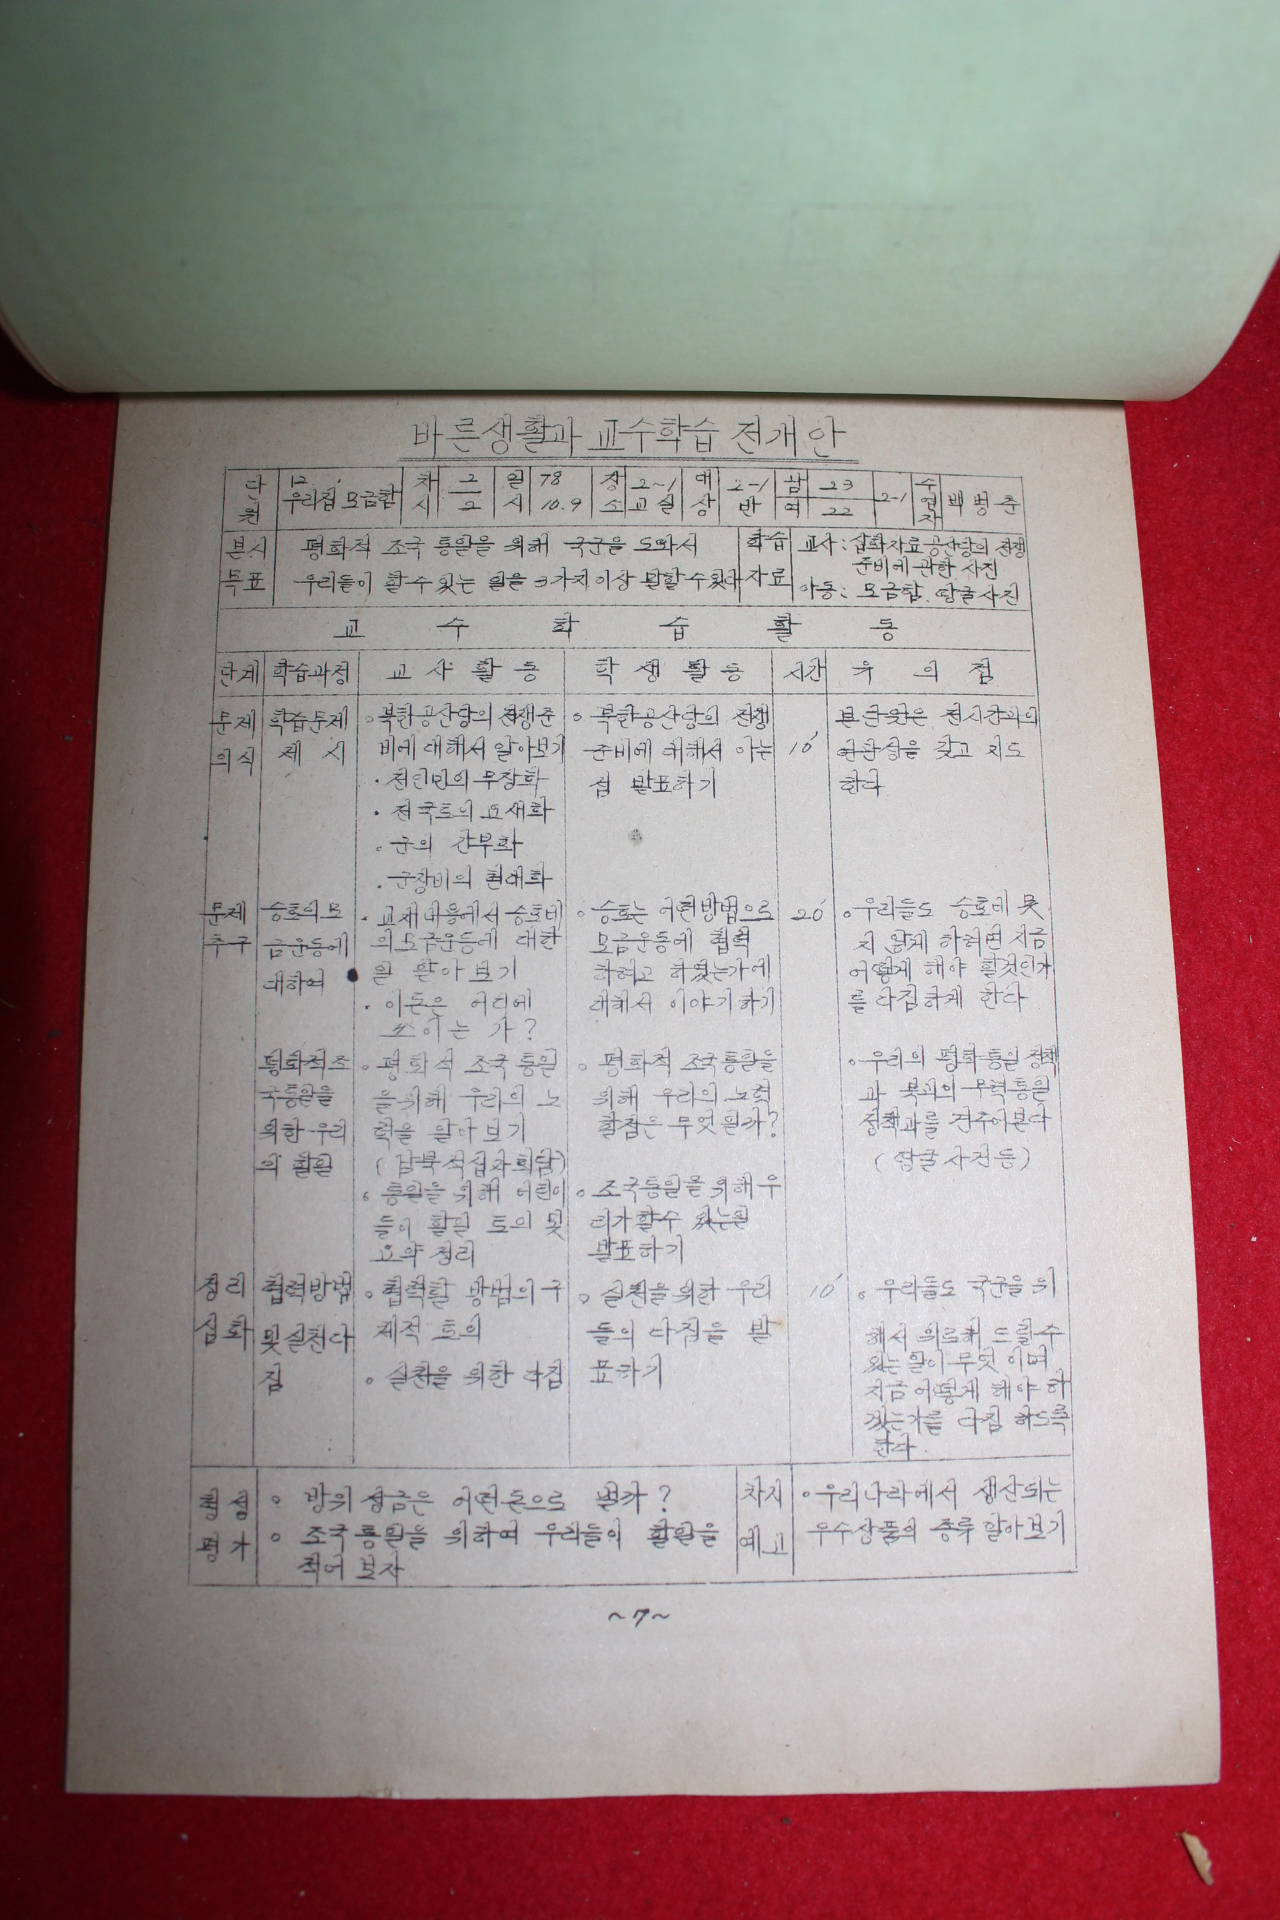 바른생활과 교수학습 전개안
단원 12. 우리집 모금함 차시 2/2 일시 78 10.9 장소 2~1 교실 대상 2-1반 남 23 여 22 2-1 수업자 백병춘
본시목표 평화적 조국 통일을 위해 국군을 도와서
우리들이 할수 있는 일을 3가지 이상 말할수있다
학습자료 교사: 삽화자료 공산당의 전쟁
준비에 관한 사진
아동: 모금함. 땅굴사진
교수학습활동
단계 학습과정 교사활동 학생활동 시간 유의점
문제의식
학습문제
제시
○ 북한공산당의 전쟁준
비에 대해서 알아보기
· 전인민의 무장화
· 전국토의 요새화
· 군의 간부화
· 군장비의 현대화
○ 북한공산당의 전쟁
준비에 대해서 아는
점 발표하기
10′
본단원은 전시간과의
연관성을 갖고 지도
한다
문제추구
승호의 모
금운동에
대하여
· 교재내용에서 승호네
의 모금운동에 대한
일 알아보기
· 이돈은 어디에
쓰이는가?
○ 승호는 어떤방법으로
모금운동에 협력
하려고 하였는가에
대해서 이야기하기
20′
○ 우리들도 승호네 못
지 않게 하려면 지금
어떻게 해야 할것인가
를 다짐하게 한다
평화적조
국통일을
위한 우리
의 할일
○ 평화적 조국통일
을 위해 우리의 노
력을 알아보기
(남북적십자회담)
○ 통일을 위해 어린이
들이 할일 토의 및
요약 정리
○ 평화적 조국통일을
위해 우리의 노력
할점은 무엇일까?
○ 조국통일을 위해 우
리가 할수 있는일
발표하기
○ 우리의 평화통일 정책
과 북괴의 무력통일
정책과를 견주어본다
(땅굴사건등)
정리심화
협력방법
및 실천다
짐
○ 협력할 방법의 구
체적 토의
○ 실천을 위한 다짐
○ 실천을 위한 우리
들의 다짐을 발
표하기
10′
○ 우리들도 국군을 위
해서 위로해 드릴수
있는 일이 무엇이며
지금 어떻게 해야 하
겠는가를 다짐 하도록
한다.
형성평가
○ 방위 성금은 어떤돈으로 낼까?
○ 조국통일을 위하여 우리들의 할일을
적어 보자
차시예고
○ 우리나라에서 생산되는
우수상품의 종류 알아보기
~7~